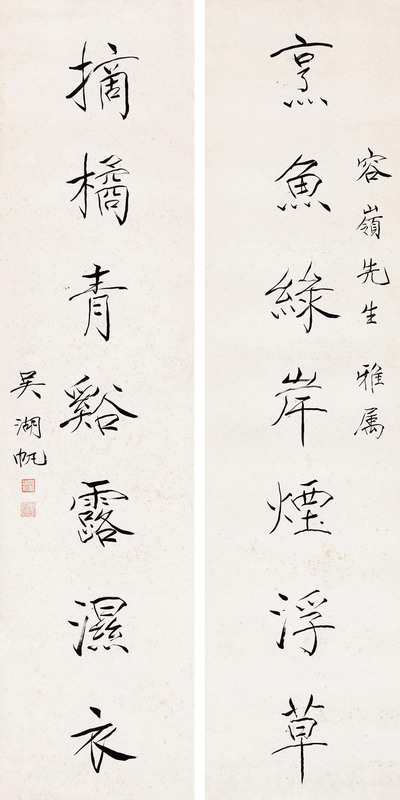 容嶺先生 雅属
烹魚綠岸煙浮草
摘橘青谿露濕衣
吳湖帆